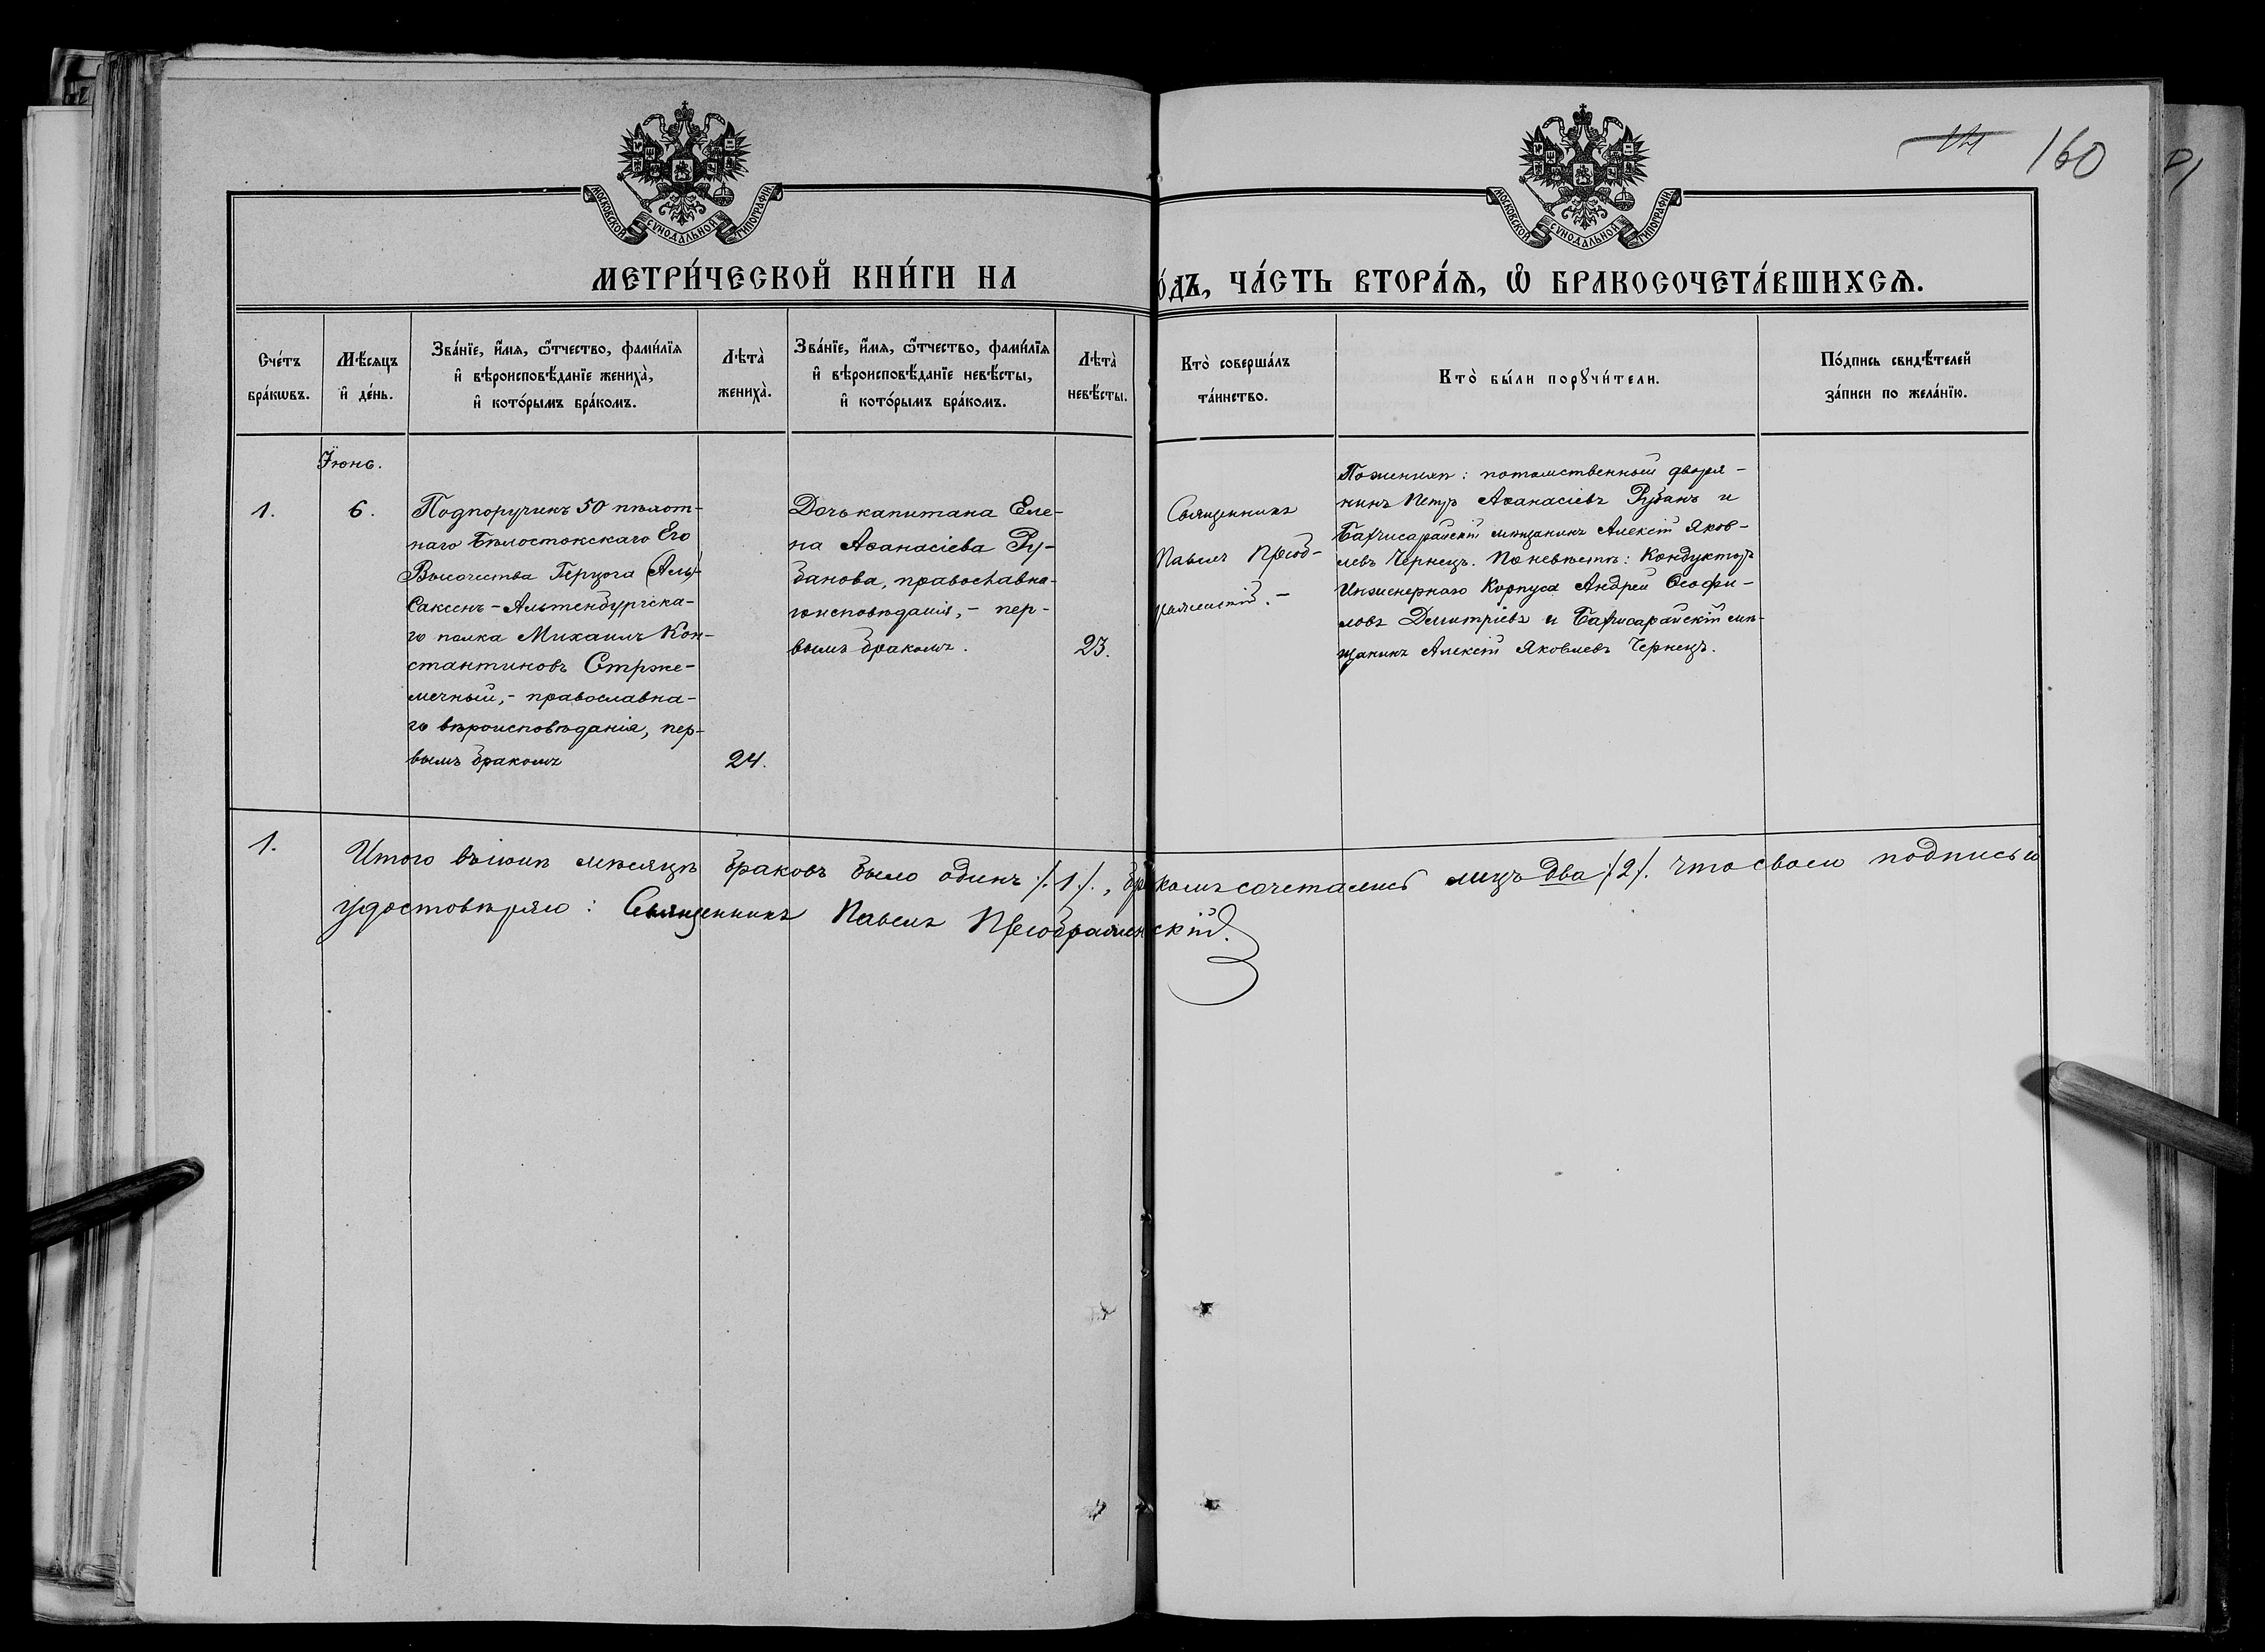 160
МОСКОВСКОЙ СУНОДАЛЬНОЙ ТИПОГРАФІИ
МОСКОВСКОЙ СУНОДАЛЬНОЙ ТИПОГРАФІИ
МЕТРИ́ЧЕСКОЙ КНИ́ГИ НА
О́ДЪ, ЧА́СТЬ ВТОРА́Ѧ, Ѡ҆ БРАКОСОЧЕТА́ВШИХСѦ.
Сче́тъ
бра́кѡвъ.
Мѣ́сяцъ
и҆ де́нь.
Зва́нїе, и҆́мя, ѻ҆́тчество, фами́лїя
и҆ вѣроисповѣ́данїе жениха̀,
и҆ кото́рымъ бра́комъ.
Лѣта̀
жениха̀.
Зва́нїе, и҆́мя, ѻ҆́тчество, фами́лїя
и҆ вѣроисповѣ́данїе невѣ́сты,
и҆ кото́рымъ бра́комъ.
Лѣта̀
невѣ́сты.
Кто̀ соверша́лъ
та́инство.
Кто̀ бы́ли порꙋчи́тели.
По́дпись свидѣ́телей
за́писи по жела́нїю.
Іюнь.
1.
6.
Подпоручикъ 50 пѣхот-
наго Бѣлостокскаго Его
Высочества Герцога
Саксенъ-Альтенбургска-
го полка Михаилъ Кон-
стантиновъ Стрже-
мечный,- православна-
го вѣроисповѣданія, пер-
вымъ бракомъ
24.
Дочь капитана Еле-
на Аѳанасіева Ру-
банова, православна-
гоисповѣданія,- пер-
вымъ бракомъ.
23.
Священникъ
Павелъ Преоб-
раженскій.-
По женихѣ: потомственный дворя-
нинъ Петръ Аѳанасіевъ Рубанъ и
Бахчисарайскій мѣщанинъ Алексій Яков-
левъ Чернецъ. По невѣстѣ: Кондукторъ
Инженернаго Корпуса Андрей Ѳеофи-
ловъ Димитріевъ и Бахчисарайскій мѣ-
щанинъ Алексій Яковлевъ Чернецъ.
1.
Итого въ іюнѣ мѣсяцѣ браковъ было одинъ /.1./., бракомъ сочетались лицъ два /.2/. что своею подписью
удостовѣряю: Священникъ Павелъ Преображенскій.